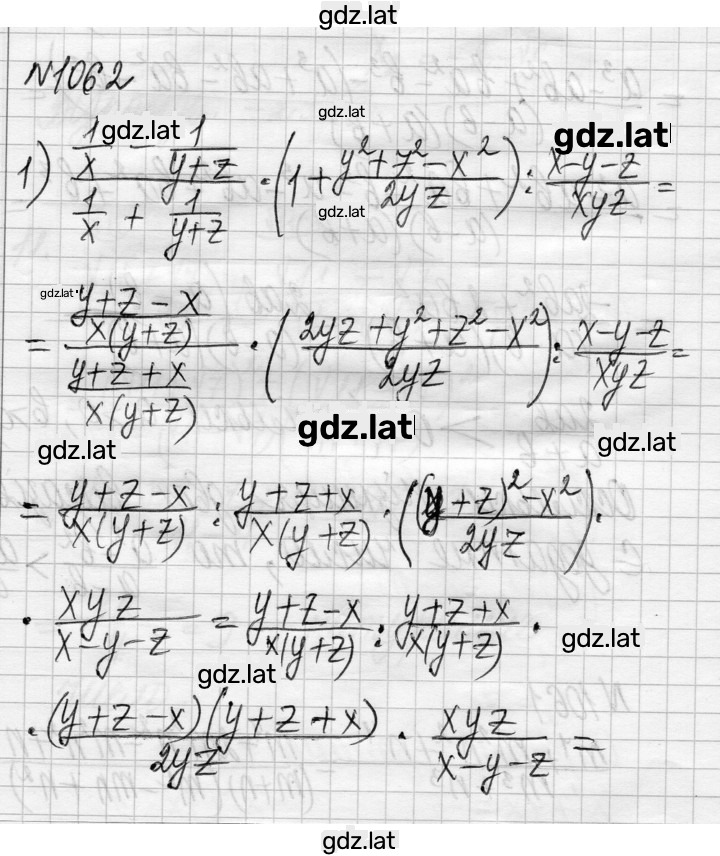 gdz.lat
N1062
gdz.lat
1) (1/x - 1/(y+z))/(1/x + 1/(y+z)) · (1 + (y²+z²-x²)/2yz) : (x-y-z)/xyz =
gdz.lat gdz.lat
gdz.lat
gdz.lat
= ((y+z-x)/x(y+z))/((y+z+x)/x(y+z)) · ((2yz+y²+z²-x²)/2yz) : (x-y-z)/xyz =
gdz.lat
gdz.lat gdz.lat
= (y+z-x)/x(y+z) : (y+z+x)/x(y+z) · (((y+z)²-x²)/2yz) ·
· xyz/(x-y-z) = (y+z-x)/x(y+z) : (y+z+x)/x(y+z) ·
gdz.lat
gdz.lat
· (y+z-x)(y+z+x)/2yz · xyz/(x-y-z) =
gdz.lat